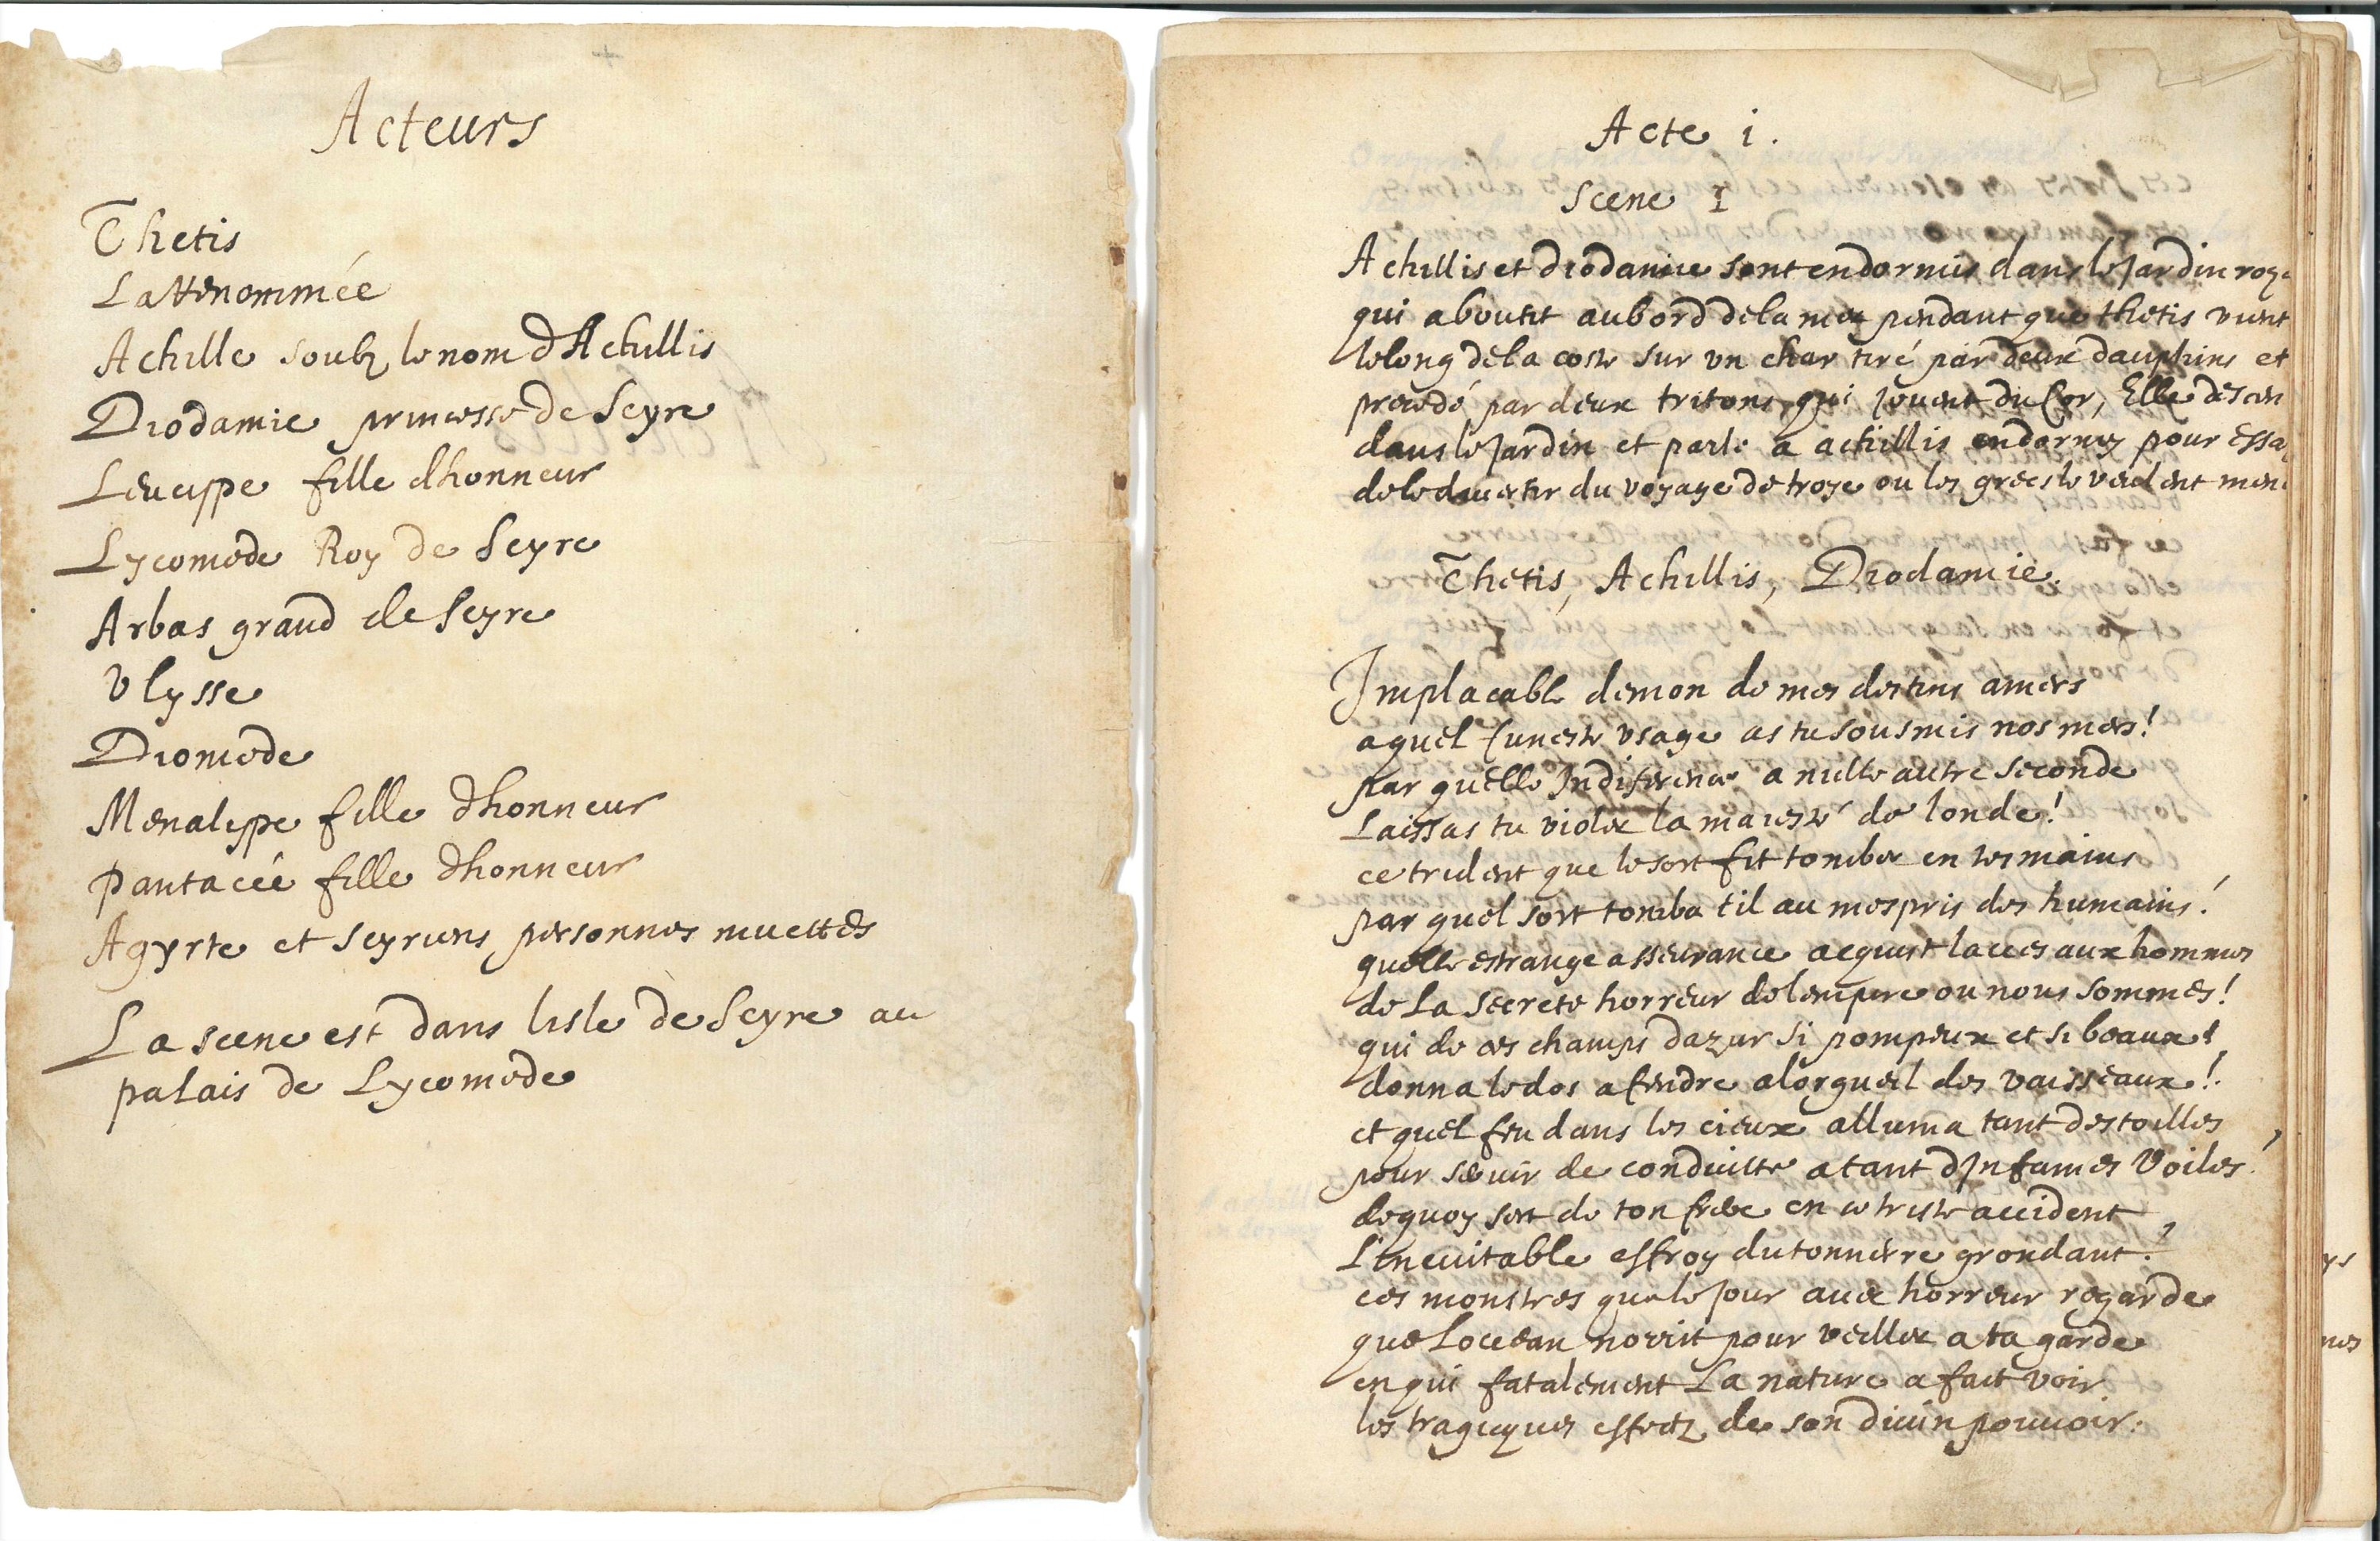 Acteurs
Thetis
La Renommée
Achille soubz le nom dAchillis
Diodamie princesse de Scyre
Leucippe fille dhonneur
Lycomede Roy de Scyre
Arbas grand de Scyre
Vlysse
Diomede
Menalippe fille dhonneur
Pantacée fille dhonneur
Agyrte et Scyriens personnes muettes
La scene est dans lisle de Scyre au
palais de Lycomede
Acte i.
Scene I
Achillis et diodamie sont endormis dans le Jardin roy
qui aboutit au bord de la mer pendant que thetis vient
le long de la coste sur vn char tiré par deux dauphins et
precedé par deux tritons qui Jouent du Cor, Elle descen
dans le Jardin et parle a achillis endormy pour essa
de le diuertir du voyage de troye ou les grecs le veulent men
Thetis, Achillis, Diodamie.
Implacable demon de mes destins amers
a quel funeste vsage as tu sousmis nos mers!
par quelle Indiference a nulle autre seconde
Laissas tu violer la maiesté de londe!
ce trident que le sort fit tomber en tes mains
par quel sort tomba til au mespris des humains!
quelle estrange asseurance acquist lacces aux hommes
de La secrete horreur de lempire ou nous sommes!
qui de ces champs dazur si pompeux et si beaux!
donna le dos a fendre a lorgueil des vaisseaux!
et quel feu dans les cieux alluma tant destoilles
pour seruir de conduitte a tant dInfames Voiles!
de quoy sert de ton frere en ce triste accident
Lineuitable effroy du tonnerre grondant?
ces monstres que le Jour auec horreur regarde
que Loccean nourit pour veiller a ta garde
en qui fatalement La nature a fait voir
les tragicques effectz de son diuin pouuoir.